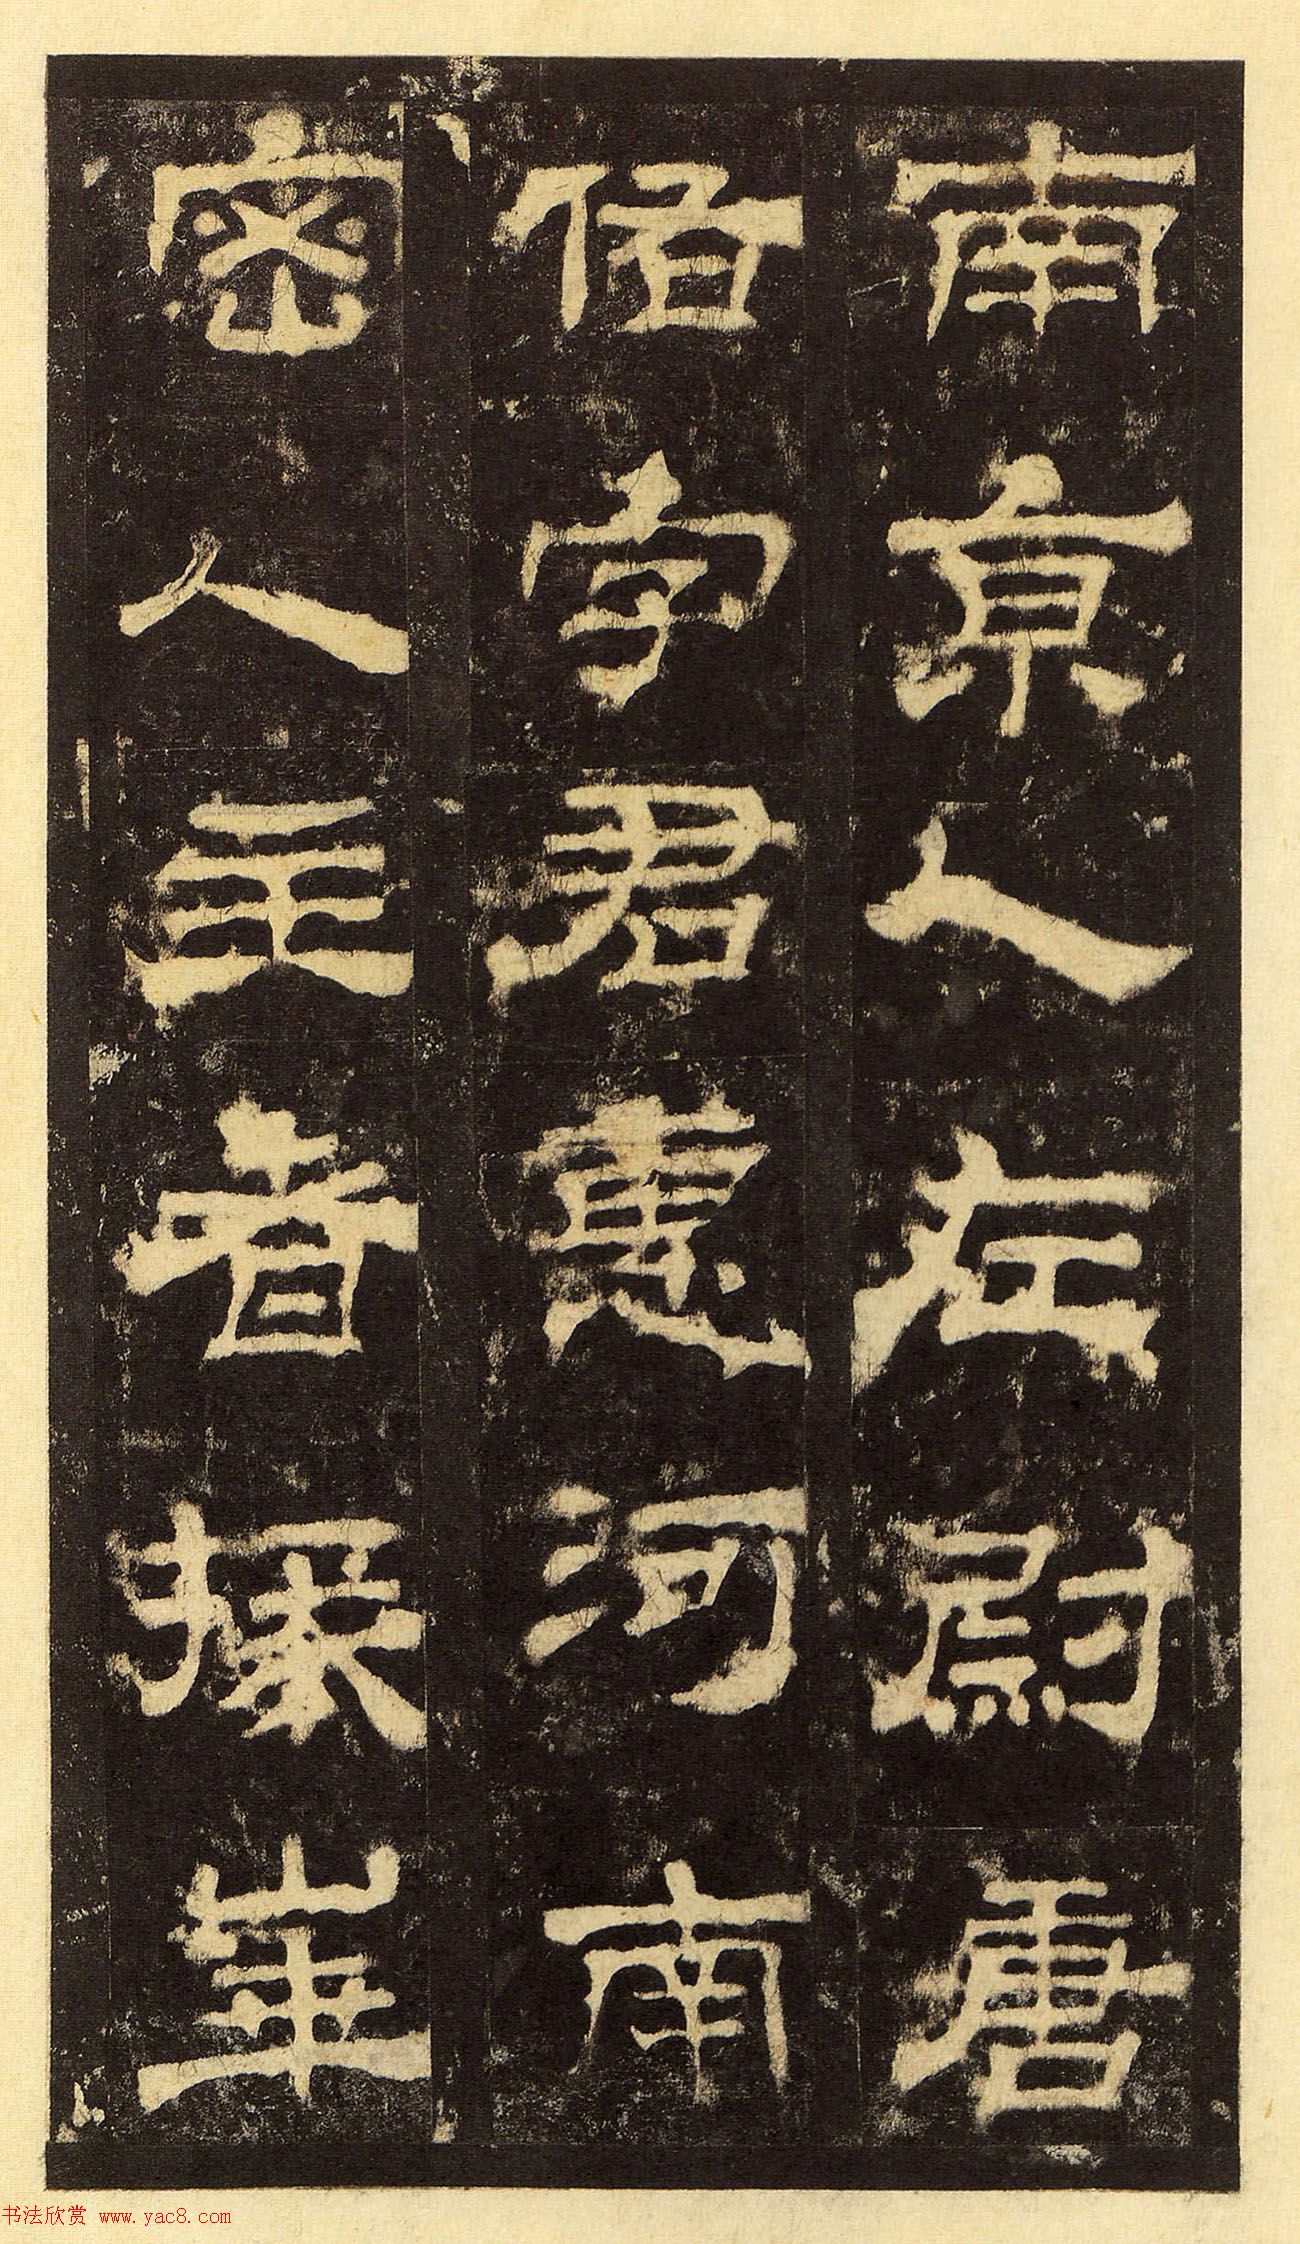 南京人左尉唐
佑字君惠河南
密人主者掾華
书法欣赏 www.yac8.com